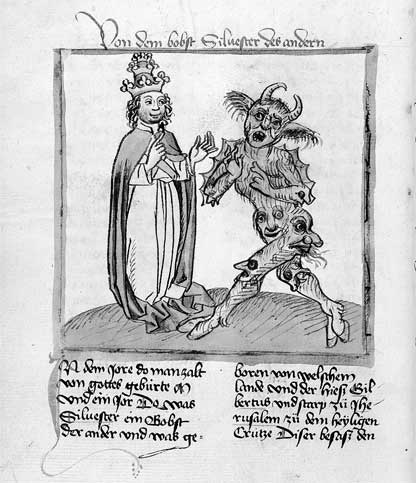 Von dem bobst Silvester des andern
N dem Jore do man zalt
von gottes gebürte M
vnd ein Jor Do was
Silvester ein Bobst
der ander vnd was ge-
boren von welschem
lande vnd der hiesß Gil-
bertus vnd starp zü Jhe-
rusalem zü dem heyligen
Crütze Diser besasß den